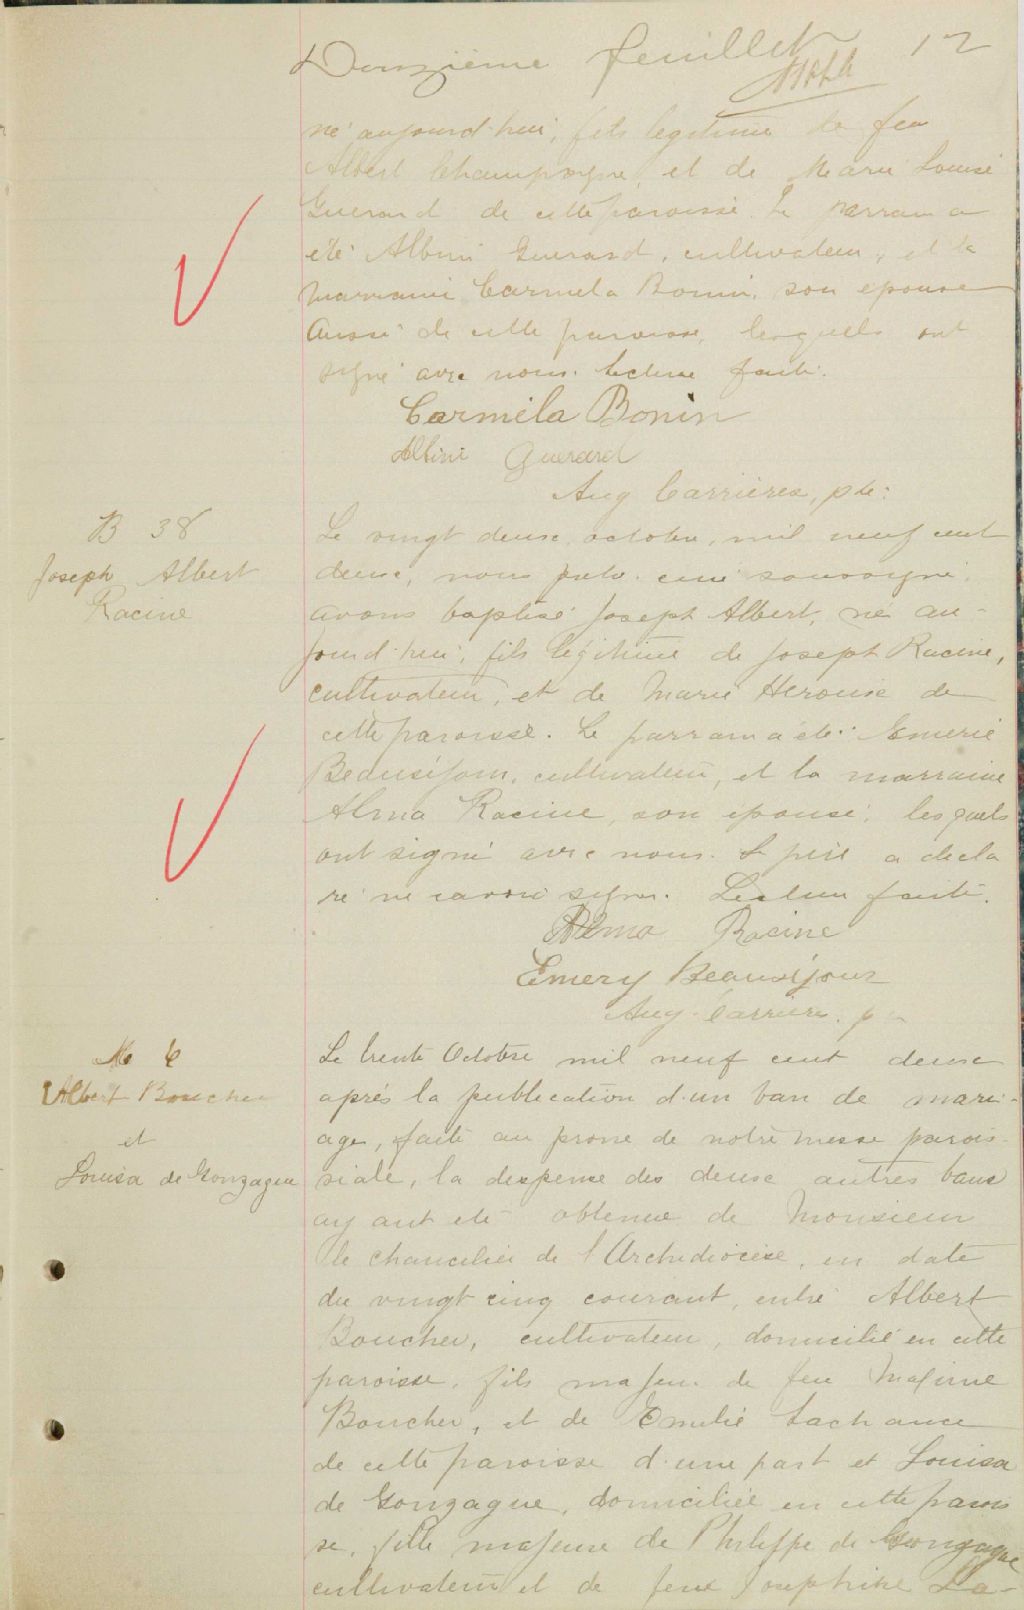 Douzième feuillet 12
né aujourd'hui, fils légitime de feu
Albert Champagne, et de Marie Louise
Guerard de cette paroisse. Le parrain a
été Albini Guerard, cultivateur, et la
marraine Carmela Bonin, son épouse
aussi de cette paroisse, lesquels ont
signé avec nous. Lecture faite.
Carmèla Bonin
Albini Guerard
Aug Carrières, ptre:
B 38
Joseph Albert
Racine
Le vingt deux, octobre, mil neuf cent
deux, nous curé soussigné,
avons baptisé Joseph Albert, né au-
jourd'hui, fils légitime de Joseph Racine,
cultivateur, et de Marie Herouse de
cette paroisse. Le parrain a été Emerie
Beauséjour, cultivateur, et la marraine
Alma Racine, son épouse, lesquels
ont signé avec nous. Le père a décla
ré ne savoir signer. Lecture faite.
Alma Racine
Emery Beauséjour
Aug. Carrières, ptre
M 6
Albert Boucher
et
Louisa de Gonzague
Le trente Octobre mil neuf cent deux
après la publication d'un ban de mari-
age, faite au prone de notre messe parois-
siale, la dispense des deux autres bans
ayant été obtenue de Monsieur
le chancelier de l'Archidiocèse, en date
du vingt cinq courant, entre Albert
Boucher, cultivateur, domicilié en cette
paroisse, fils majeur de feu Maxime
Boucher, et de Emelie Lachance
de cette paroisse d'une part et Louisa
de Gonzague, domiciliée en cette parois
se, fille majeure de Philippe de Gonzague
cultivateur et de feue Josephine La-